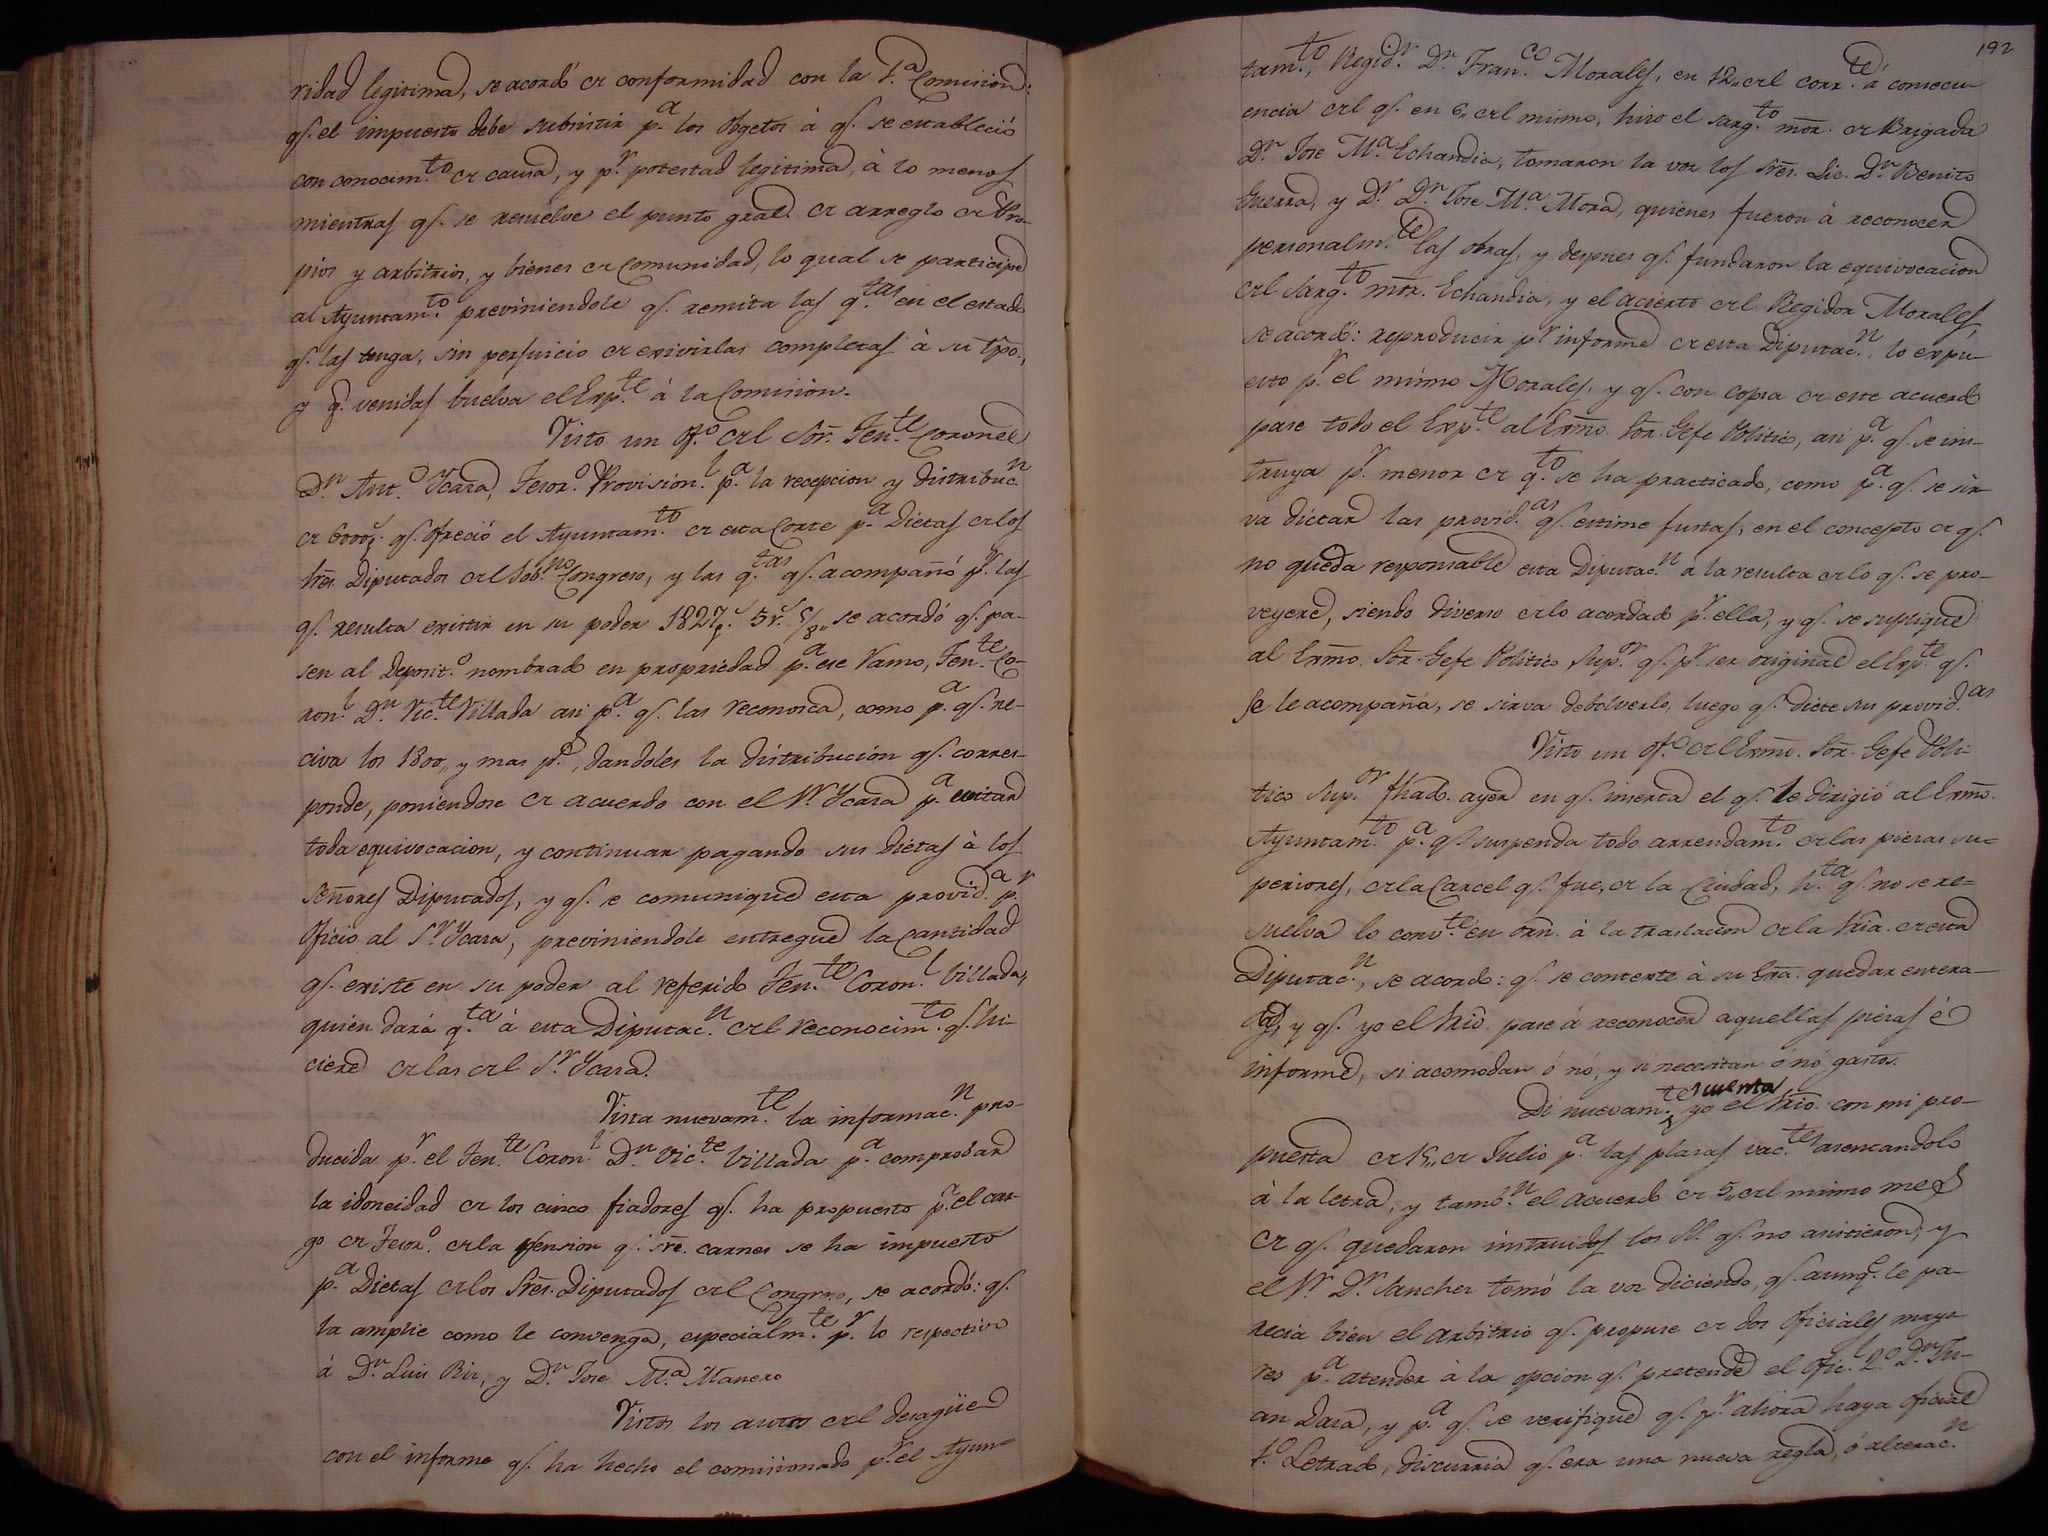 ridad legitima, se acordó de conformidad con la 1.ª Comision:
q.e el impuesto debe subsistir p.a los Obgetos à q.e se estableció
con conocim.to de causa, y p.r potestad legitima, à lo menos
mientras q.e se resuelve el punto gral. de arreglo de Pro-
pios y arbitrios, y bienes de Comunidad, lo qual se participe
al Ayuntam.to previniendole q.e remita las q.tas en el estado
q.e las tenga, sin perjuicio de exivirlas completas à su tpo.,
y q.e venidas buelva el Exp.te à la Comision.
Visto un Of.o del Sor. Ten.te Coronel
D.n Ant.o Ycaza, Tesor.o Provision.l p.a la recepcion y distribuc.n
de 6000 p.s q.e ofreció el Ayuntam.to de esta Corte p.a Dietas de los
Sres. Diputados del Sob.no Congreso, y las q.tas q.e acompañó p.r las
q.e resulta existir en su poder 1827 p.s 5 r.s 5/8,, se acordó q.e pa-
sen al Deposit.o nombrado en propriedad p.a ese ramo, Ten.te Co-
ron.l D.n Vic.te Villada asi p.a q.e las reconosca, como p.a q.e re-
civa los 1800,, y mas p.s, dandoles la distribución q.e corres-
ponde, poniendose de acuerdo con el S.r Ycaza p.a evitar
toda equivocacion, y continuar pagando sus Dietas à los
Señores Diputados, y q.e se comunique esta provid.a p.r
Oficio al S.r Ycaza, previniendole entregue la Cantidad
q.e existe en su poder al referido Ten.te Coron.l Villada,
quien dará q.ta á esta Diputac.n del reconocim.to q.e hi-
ciere de las del S.r Ycaza.
Vista nuevam.te la informac.n pro-
ducida p.r el Ten.te Coron.l D.n Vic.te Villada p.a comprobar
la idoneidad de los cinco fiadores q.e ha propuesto p.a el car-
go de Tesor.o de la pension q.e sre. carnes se ha impuesto
p.a Dietas de los Sres. Diputados del Congreso, se acordó: q.e
la amplie como le convenga, especialm.te p.r lo respectivo
á D.n Luis Biz, y D.n Jose M.a Manero
Vistos los autos del desagüe
con el informe q.e ha hecho el comisionado p.r el Ayun=
192
tam.to, Regid.r D.n Fran.co Morales, en 12,, del corr.te á consecu-
encia del q.e en 6,, del mismo, hizo el sarg.to mor. de Brigada
D.n Jose M.a Echandia, tomaron la voz los Sres. Lic. D.n Benito
Guerra, y D.r D.n Jose M.a Mora, quienes fueron á reconocer
personalm.te las obras, y despues q.e fundaron la equivocacion
del Sarg.to mor. Echandia, y el acierto del Regidor Morales,
se acordó: reproducir p.r informe de esta Diputac.n, lo expu-
esto p.r el mismo Morales, y q.e con copia de este acuerdo
pase todo el Exp.te al Exmo. Sor. Gefe Politico, asi p.a q.e se ins-
truya p.r menor de q.to se ha practicado, como p.a q.e se sir-
va dictar las provid.as q.e estime justas, en el concepto de q.e
no queda responsable esta Diputac.n a la resulta de lo q.e se pro-
veyere, siendo diverso de lo acordado p.r ella, y q.e se suplique
al Exmo. Sor. Gefe Politico Sup.or q.e p.r ser original el Exp.te q.e
se le acompaña, se sirva debolverlo, luego q.e dicte sus provid.as
Visto un of.o del Exmo. Sor. Gefe Poli-
tico Sup.or fhado. ayer en q.e inserta el q.e le dirigió al Exmo.
Ayuntam.to p.a q.e suspenda todo arrendam.to de las piezas su=
periores, de la Carcel q.e fue, de la Ciudad, h.ta q.e no se re=
suelva lo conv.te en orn. à la traslacion de la Sria. de esta
Diputac.n, se acordó: q.e se conteste à su Exa. quedar entera-
da, y q.e yo el Srio. pase á reconocer aquellas piezas é
informe, si acomodan ó nó, y si necesitan ó nó gastos.
cuenta
Di nuevam.te yo el Srio. con mi pro-
puesta de 15,, de Julio p.a las plazas vac.tes asentandolo
à la letra, y tamb.n el acuerdo de 5,, del mismo mes
de q.e quedaron instruidos los SS. q.e no asistieron; y
el S.r D.r Sanchez tomó la voz diciendo, q.e aunq.e le pa-
recia bien el arbitrio q.e propuse de dos Oficiales mayo-
res p.a atender à la opcion q.e pretende el Ofic.l 2.o D.n Ju-
an Daza, y p.a q.e se verifique q.e p.r ahora haya Oficial
1.o Letrado, discurria q.e era una nueva regla, ó alterac.n